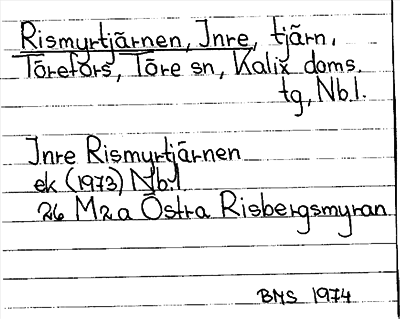 Rismyrtjärnen, Inre, tjärn,
Törefors, Töre sn, Kalix doms.
tg, Nb.l.
Inre Rismyrtjärnen
ek (1973) Nb.l
26 M 2 a Östra Risbergsmyran
BMS 1974